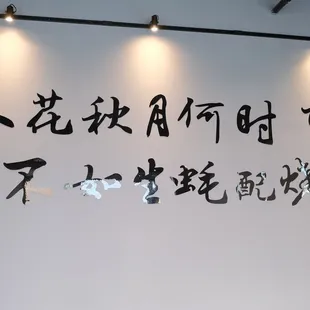 花秋月何时
不如生蚝配烧